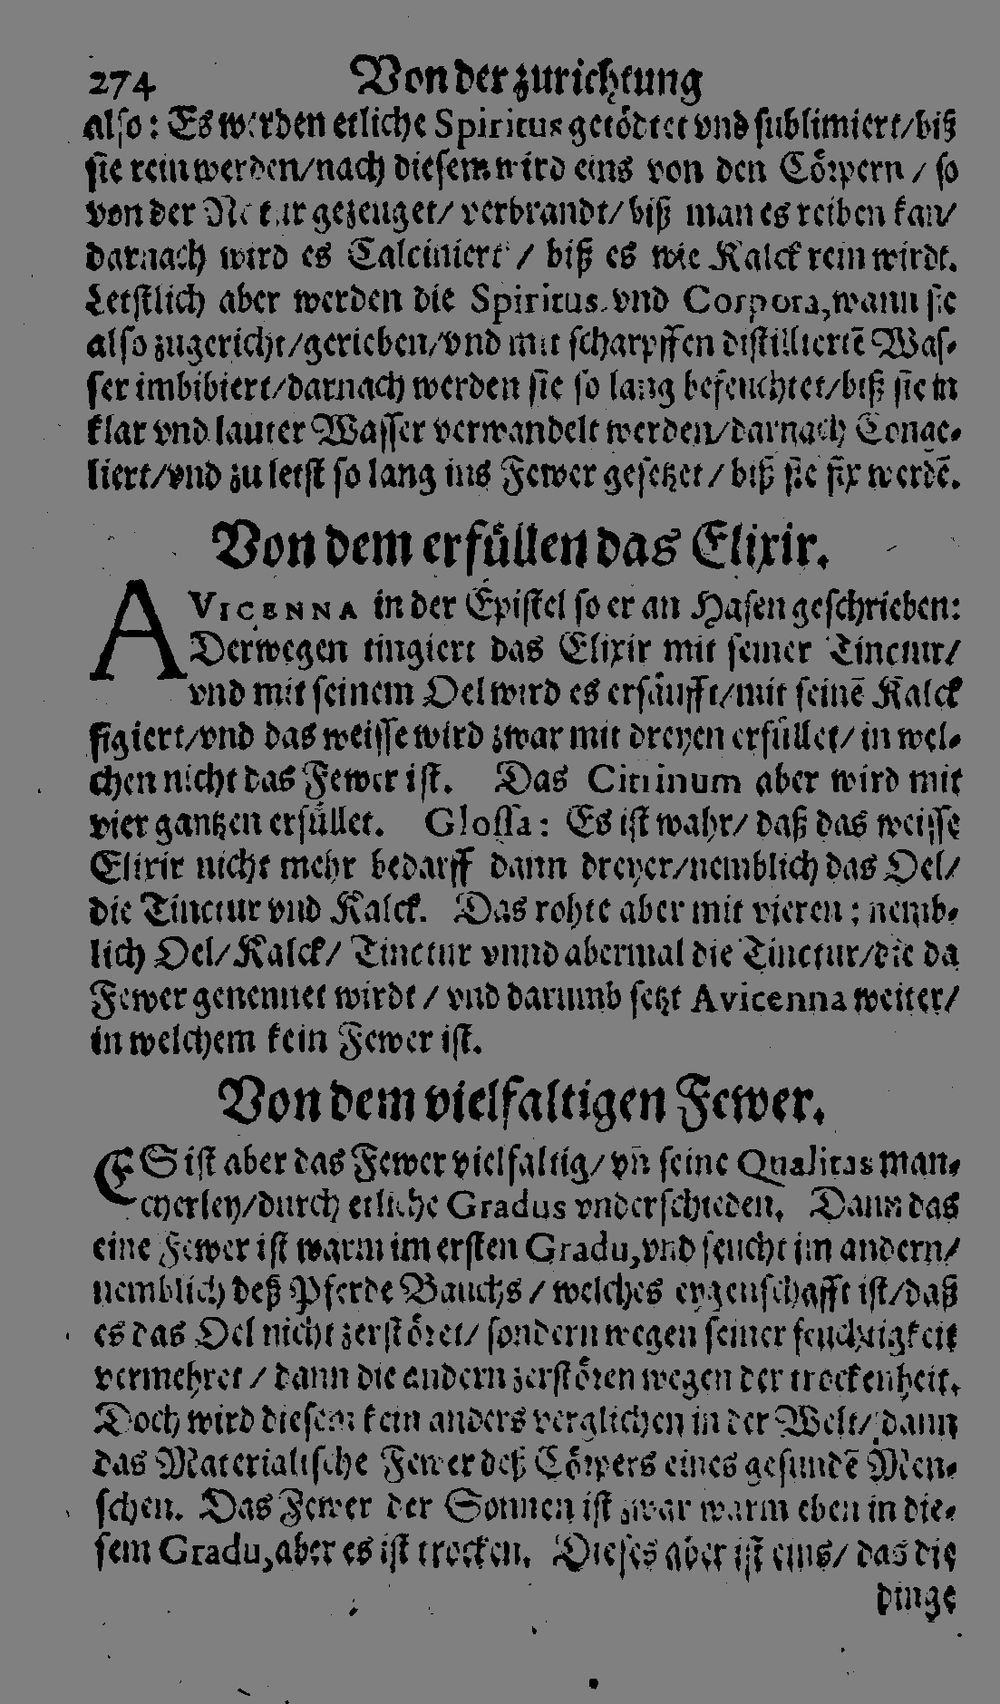 274 Von der zurichtung
also: Es werden etliche Spiritus getödtet vnd sublimiert/biß
sie rein werden/nach diesem wird eins von den Cörpern / so
von der Natur gezeuget/ verbrandt/ biß man es reiben kan/
darnach wird es Calciniert / biß es wie Kalck rein wirdt.
Letstlich aber werden die Spiritus vnd Corpora, wann sie
also zugericht/gerieben/vnd mit scharpffen distilliertē Was-
ser imbibiert/darnach werden sie so lang befeuchtet/biß sie in
klar vnd lauter Wasser verwandelt werden/darnach Conge-
liert/vnd zu letst so lang ins Fewer gesetzet / biß sie fix werdē.
Von dem erfüllen das Elixir.
AVICENNA in der Epistel so er an Hasen geschrieben:
Derwegen tingiert das Elixir mit seiner Tinctur/
vnd mit seinem Oel wird es ersäufft/mit seinē Kalck
figiert/vnd das weisse wird zwar mit dreyen erfüllet/ in wel-
chen nicht das Fewer ist. Das Citrinum aber wird mit
vier gantzen erfüllet. Glossa: Es ist wahr/ daß das weisse
Elixir nicht mehr bedarff dann dreyer/nemblich das Oel/
die Tinctur vnd Kalck. Das rohte aber mit vieren: nemb-
lich Oel/ Kalck/ Tinctur vnnd abermal die Tinctur/die da
Fewer genennet wirdt / vnd darumb setzt Avicenna weiter/
in welchem kein Fewer ist.
Von dem vielfaltigen Fewer.
ES ist aber das Fewer vielfaltig/ vñ seine Qualitas man-
cherley/durch etliche Gradus vnderschieden. Dann das
eine Fewer ist warm im ersten Gradu, vnd feucht im andern/
nemblich deß Pferde Bauchs / welches eygenschafft ist/daß
es das Oel nicht zerstöret/ sondern wegen seiner feuchtigkeit
vermehret / dann die andern zerstören wegen der trockenheit.
Doch wird diesem kein anders verglichen in der Welt/ dann
das Materialische Fewer deß Cörpers eines gesundē Men-
schen. Das Fewer der Sonnen ist zwar warm eben in die-
sem Gradu, aber es ist trocken. Dieses aber ist eins/ das die
dinge